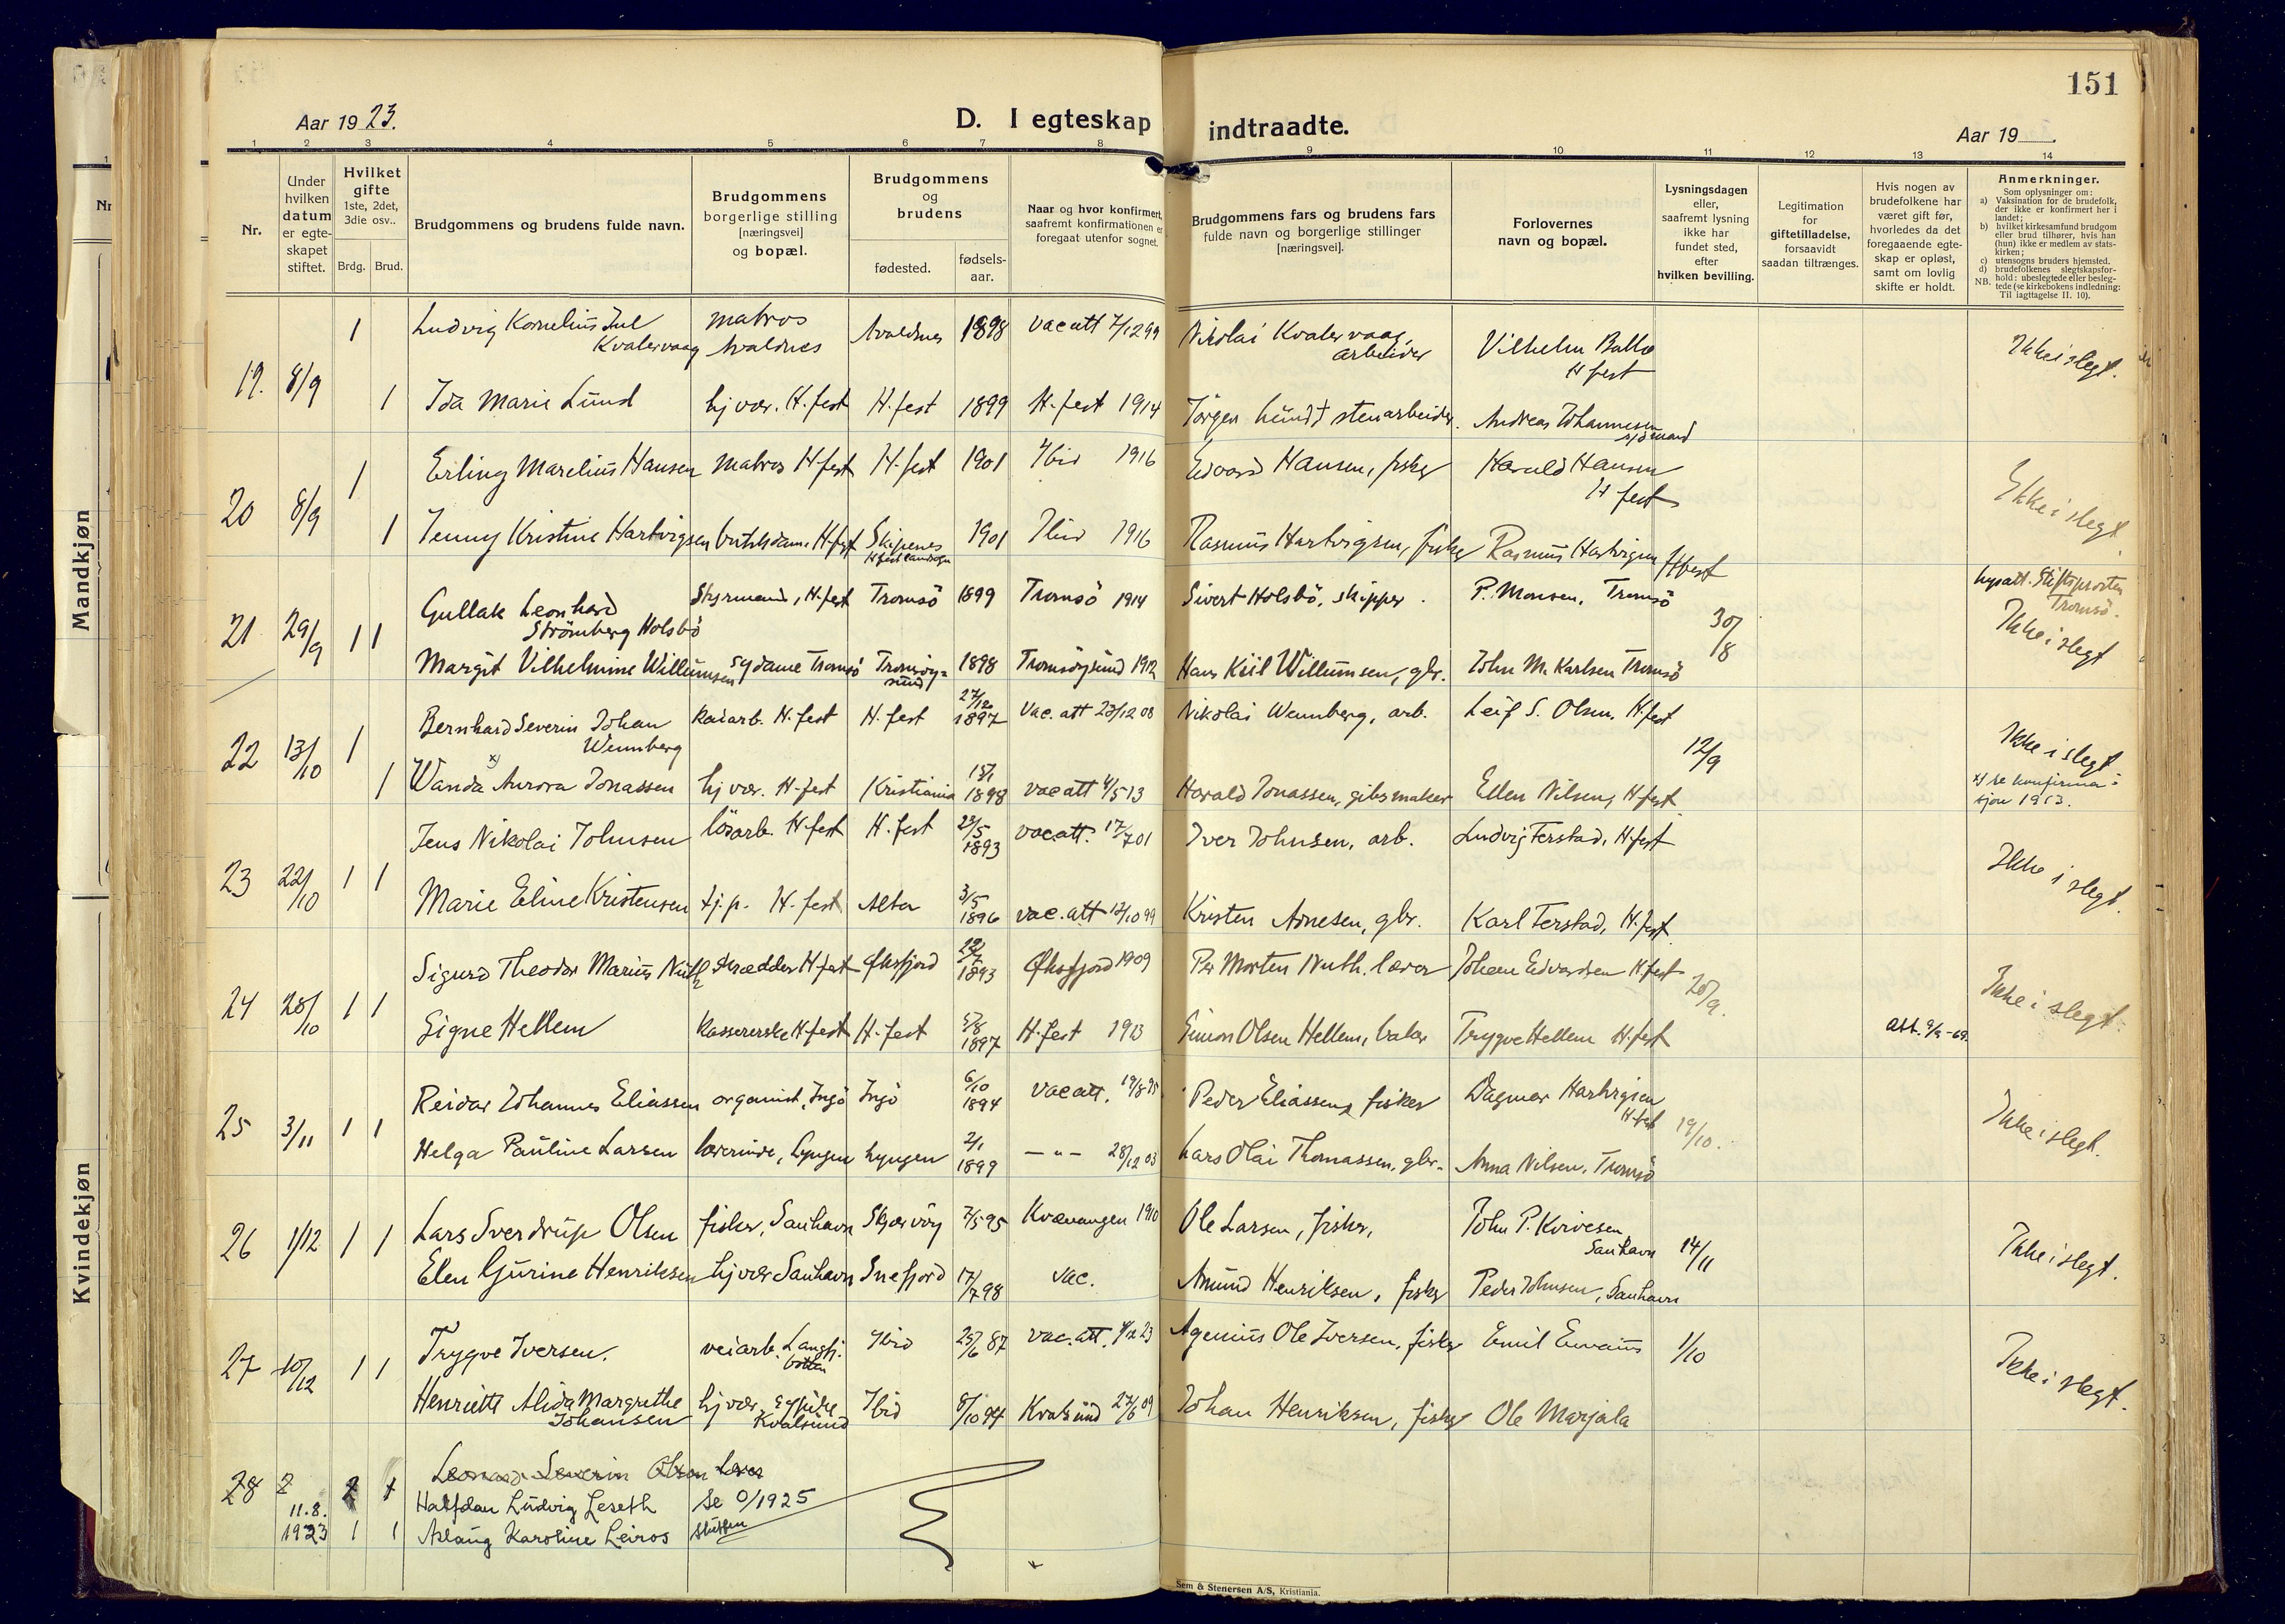 151
Aar 1923.
D. I egteskap indtraadte.
Aar 19
1 2 3 4 5 6 7 8 9 10 11 12 13 14
Nr.
Under hvilken datum er egteskapet stiftet.
Hvilket gifte 1ste, 2det, 3die osv..
Brdg. Brud.
Brudgommens og brudens fulde navn.
Brudgommens borgerlige stilling [næringsvei] og bopæl.
Brudgommens og brudens
fødested.
fødsels-aar.
Naar og hvor konfirmert, saafremt konfirmationen er foregaat utenfor sognet.
Brudgommens fars og brudens fars fulde navn og borgerlige stillinger [næringsvei].
Forlovernes navn og bopæl.
Lysningsdagen eller, saafremt lysning ikke har fundet sted, efter hvilken bevilling.
Legitimation for giftetilladelse, forsaavidt saadan tiltrænges.
Hvis nogen av brudefolkene har været gift før, hvorledes da det foregaaende egteskap er opløst, samt om lovlig skifte er holdt.
Anmerkninger.
Som oplysninger om:
a) Vaksination for de brudefolk, der ikke er konfirmert her i landet;
b) hvilket kirkesamfund brudgom eller brud tilhører, hvis han (hun) ikke er medlem av statskirken;
c) utensogns bruders hjemsted.
d) brudefolkenes slegtskapsforhold: ubeslegtede eller beslegtede (se kirkebokens indledning: Til iagttagelse II. 10).
NB.
Mandkjøn
Kvindekjøn
19. 8/9 1 Ludvig Kornelius Juel Kvalevaag matros Avaldnes Avaldnes 1898 vac att 7/12 99 Nikolai Kvalevaag, arbeider Vilhelm Balke H fest Ikke i slegt.
1 Ida Marie Lund hj vær. H.fest H.fest 1899 H.fest 1914 Jörgen Lund † stenarbeider. Andreas Johannesen sjömand
20 8/9 1 Erling Marelius Hansen matros H-fest H.fest 1901 Ibid 1916 Edvard Hansen, fisker Harald Hansen H fest Ikke i slegt
1 Jenny Kristine Hartvigsen butikdam. H-fest Skipenes H fest landsogn 1901 Ibid 1916 Rasmus Hartvigsen, fisker Rasmus Hartvigsen Hfest
21 29/9 1 1 Gullak Leonhard Strömberg Holsbö Styrmand, H.fest Tromsö 1899 Tromsö 1914 Sivert Holsbö, skipper. P. Monsen, Tromsö 30/8 lysatt. Stiftsprosten Tromsö. Ikke i slegt
Margit Vilhelmine Willumsen sydame Tromsö Tromsöysund 1898 Tromsöysund 1912 Hans Kiil Willumsen, gbr. John M. Karlsen Tromsö
22 13/10 1 Bernhard Severin Johan Wennberg kaiarb. H.fest H.fest 27/12 1897 Vac. att 23/12 08 Nikolai Wennberg, arb. Leif S. Olsen, H.fest 12/9 Ikke i slegt
1 Wanda x) Aurora Jonassen hj vær. H-fest Kristiania 15/1 1898 vac att 4/5 13 Harald Jonassen, gibsmaker Ellen Nilsen, H-fest x) se konfirmasjon 1913.
23 22/10 1 1 Jens Nikolai Johnsen lösarb. H-fest H.fest 29/5 1893 vac att. 17/7 01 Iver Johnsen, arb. Ludvig Ferstad, H-fest Ikke i slegt.
Marie Eline Kristensen tj.p. H-fest Alta 3/5 1896 vac. att 12/10 99 Kristen Arnesen, gbr. Karl Ferstad, H.fest
24 28/10 1 1 Sigurd Theodor Marius Nuth skrædder H-fest Øksfjord 1893 Øksfjord 1909 Per Morten Nuth. lærer Johan Edvardsen H.fest 20/9. Ikke i slegt.
Signe Hellem Kassererske H-fest H-fest 5/8 1897 H-fest 1913 Simon Olsen Hellem, baker Trygve Hellem H-fest att. 9/9-69.
25 3/11 1 1 Reidar Johannes Eliassen organist, Ingö Ingö 6/10 1894 Vac att. 19/8 95 Peder Eliassen, fisker Dagmar Hartvigsen H-fest 19/10. Ikke i slegt.
Helga Pauline Larsen lærerinde, Lyngen Lyngen 2/1 1899 — " — 28/12 03 Lars Olai Thomassen, gbr. Anna Nilsen, Tromsö
26 1/12 1 1 Lars Sverdrup Olsen fisker, Sanhavn Skjærvöy 7/5 95 Kvænangen 1910 Ole Larsen, fisker, John P. Korvesen Sanhavn 14/11 Ikke i slegt.
Elen Gurine Henriksen hj vær Sanhavn Snefjord 17/7 98 vac. Amund Henriksen, fisker Peder Johnsen, Sanhavn
27 10/12 1 1 Trygve Iversen. veiarb. Langfj. botten Ibid 25/6 87 vac. att. 4/12 23 Agenius Ole Iversen, fisker Emil Envaus 1/10 Ikke i slegt.
Henriette Alida Margrethe Johansen hj vær. Kvalsund Ibid 8/10 94 Kvalsund 27/6 09 Johan Henriksen, fisker Ole Marjala
28 2 Leonard Severin Olsen lærer
11.8. 1923 Halfdan Ludvig Leseth Se O/1925
1 1 Aslaug Karoline Leiros slutten
Sem & Stenersen A/S, Kristiania.